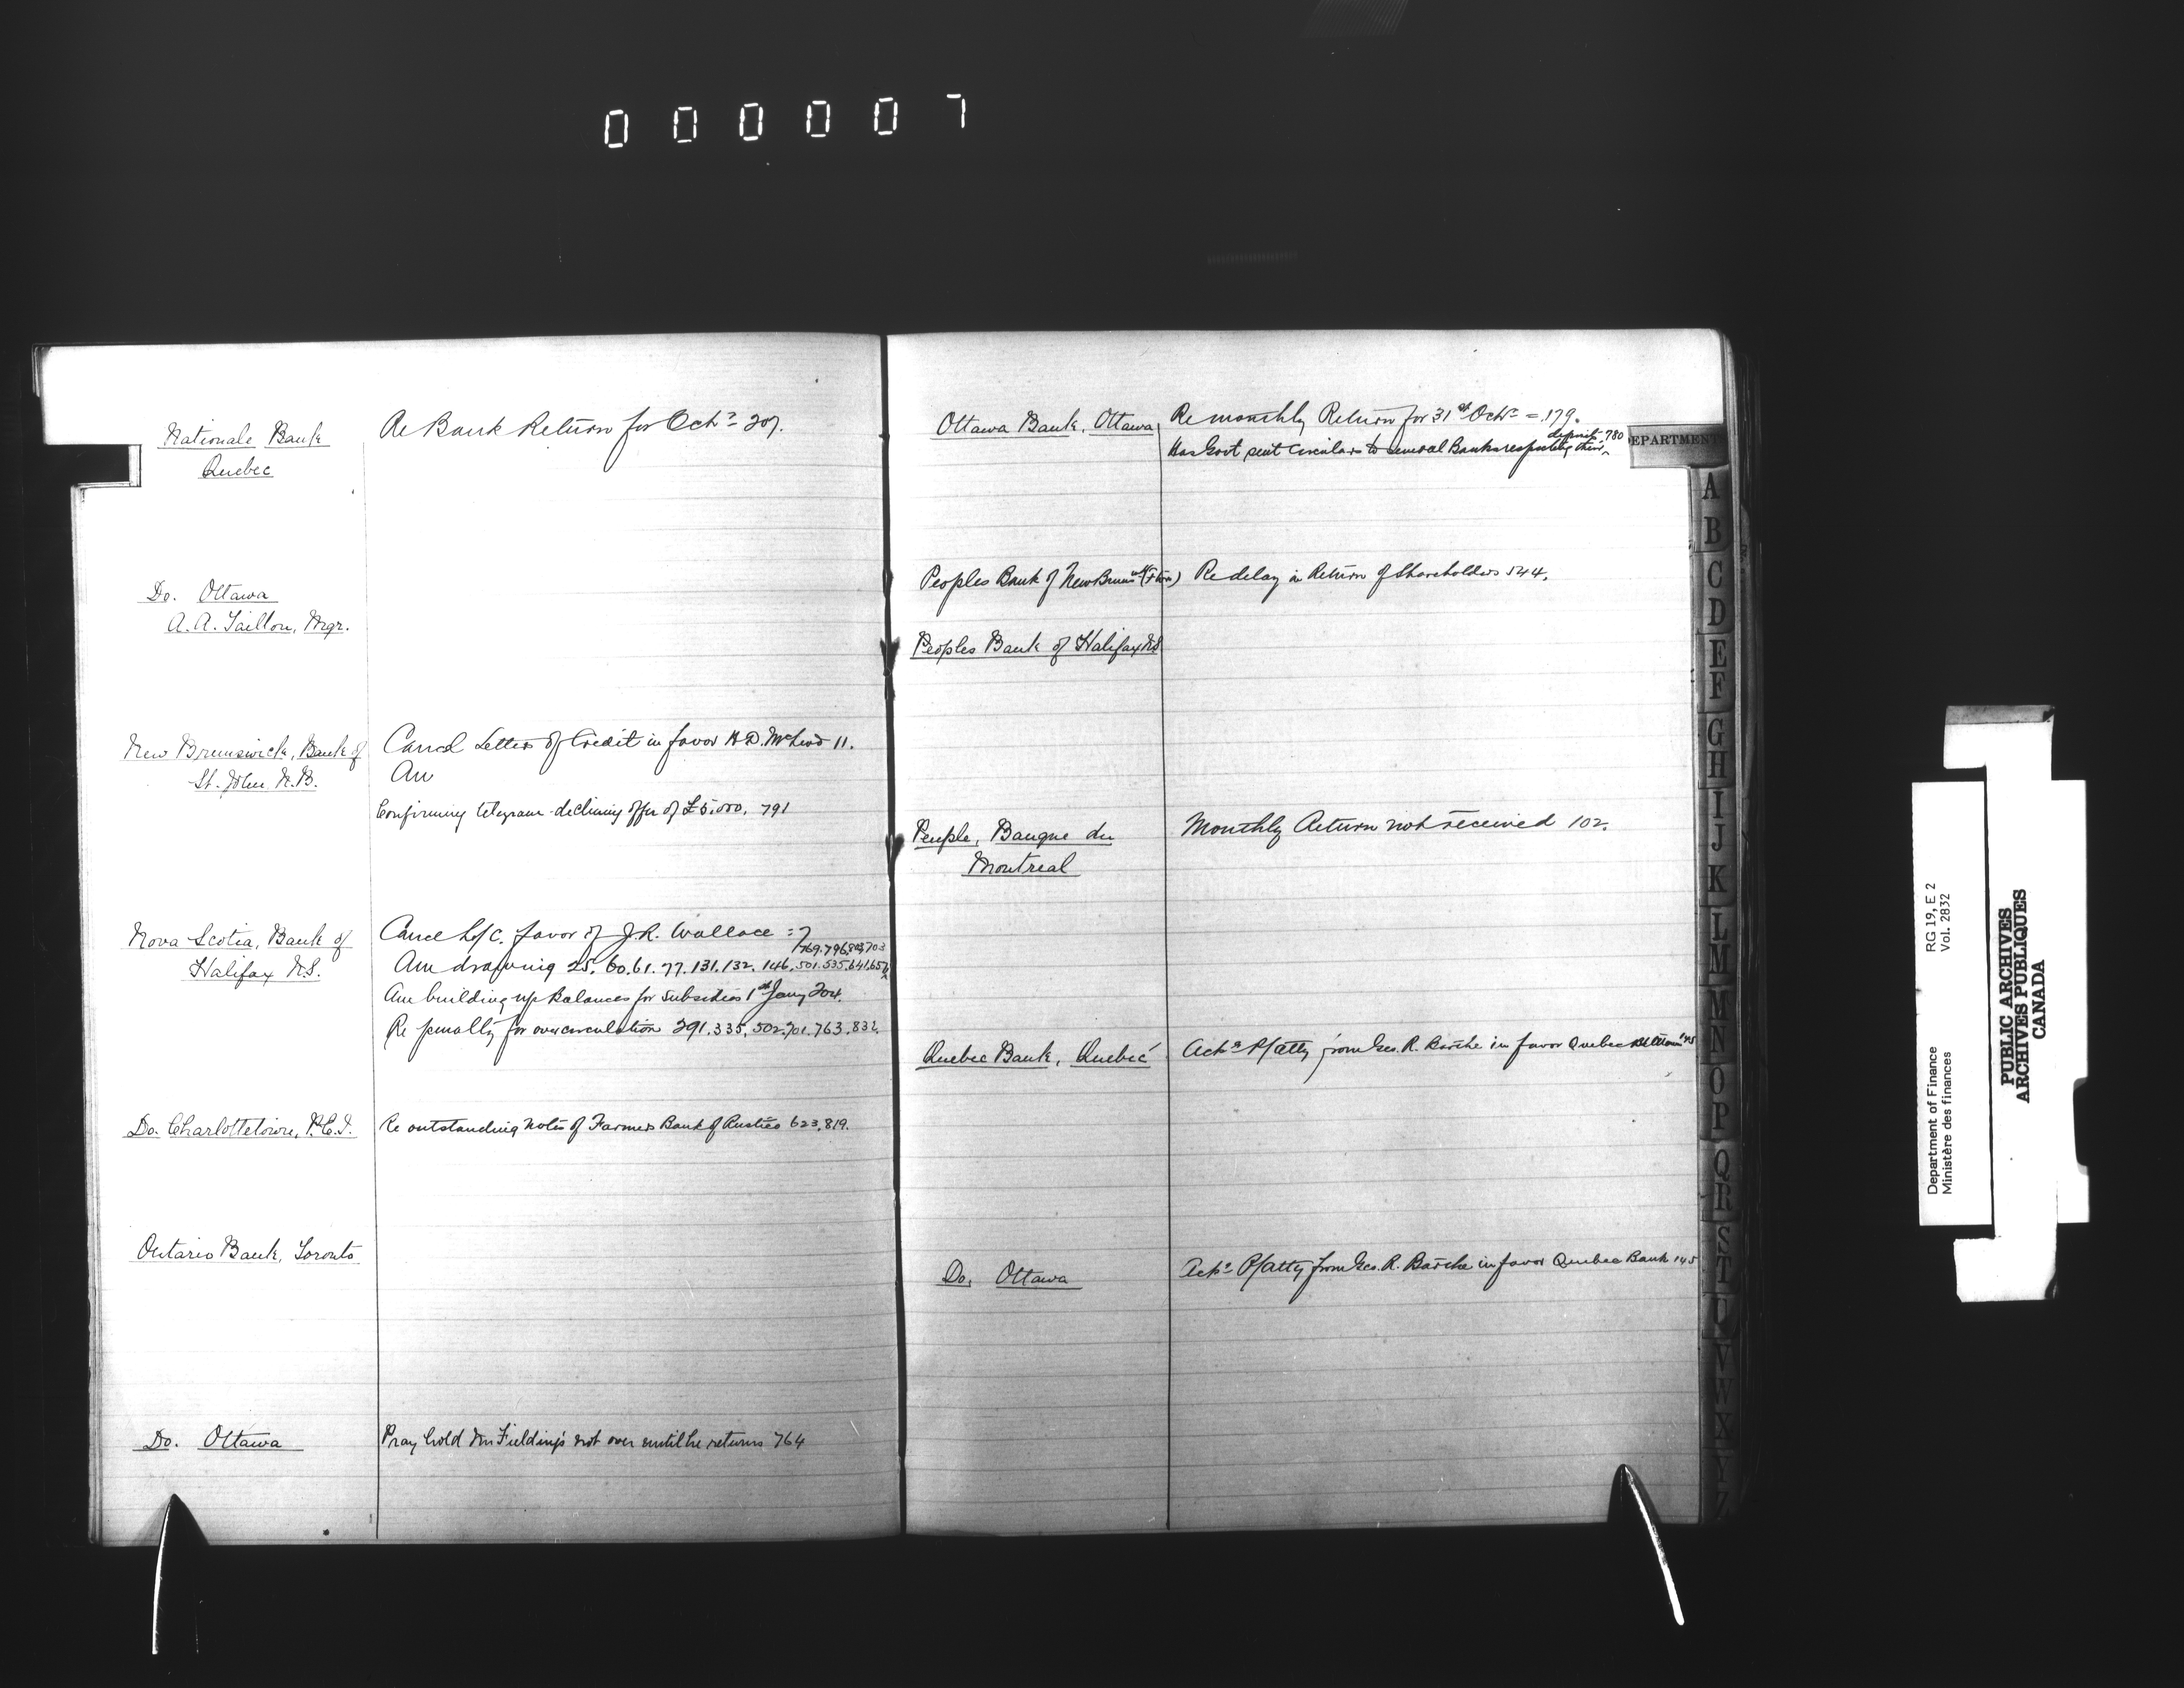 000007
Nationale Bank
Quebec
Re Bank Return for Octr 207.
Do. Ottawa
A. A. Taillon, Mgr.
New Brunswick, Bank of
St. John N.B.
Cancel Letter of Credit in favor H. D. McLeod 11.
Am
Confirming telegram declining offer of £5,000. 791
Nova Scotia, Bank of
Halifax N.S.
Cancel L/C. favor of J. R. Wallace = 7
769.796.803.703
Am drawing 25. 60. 61. 77. 131. 132. 146. 501. 535. 641. 657
Am building up balances for subsidies 1st Jany 204.
Re penalty for overcirculation 291. 335. 502. 701. 763. 832.
Do. Charlottetown, P.E.I.
Re outstanding notes of Farmers Bank of Rustico 623. 819.
Ontario Bank, Toronto
Do. Ottawa
Pray hold Mr Fielding's not over until he returns 764
Ottawa Bank, Ottawa
Re monthly Return for 31st Octr = 179.
Has Govt sent circulars to several Banks respecting their deposits 780
Peoples Bank of New Brunswk (Fton)
Re delay in Return of Shareholders 544.
Peoples Bank of Halifax NS
Peuple, Banque du
Montreal
Monthly Return not received 102.
Quebec Bank, Quebec
Ackg P/atty from Geo. R. in favor Quebec
Do. Ottawa
Ackg P/atty from Geo. R. in favor Quebec Bank 145
DEPARTMENT
A
B
C
D
E
F
G
H
I
J
K
L
M
N
O
P
Q
R
S
T
U
V
W
X
Y
Z
RG 19, E 2
Vol. 2832
Department of Finance
Ministère des finances
PUBLIC ARCHIVES
ARCHIVES PUBLIQUES
CANADA